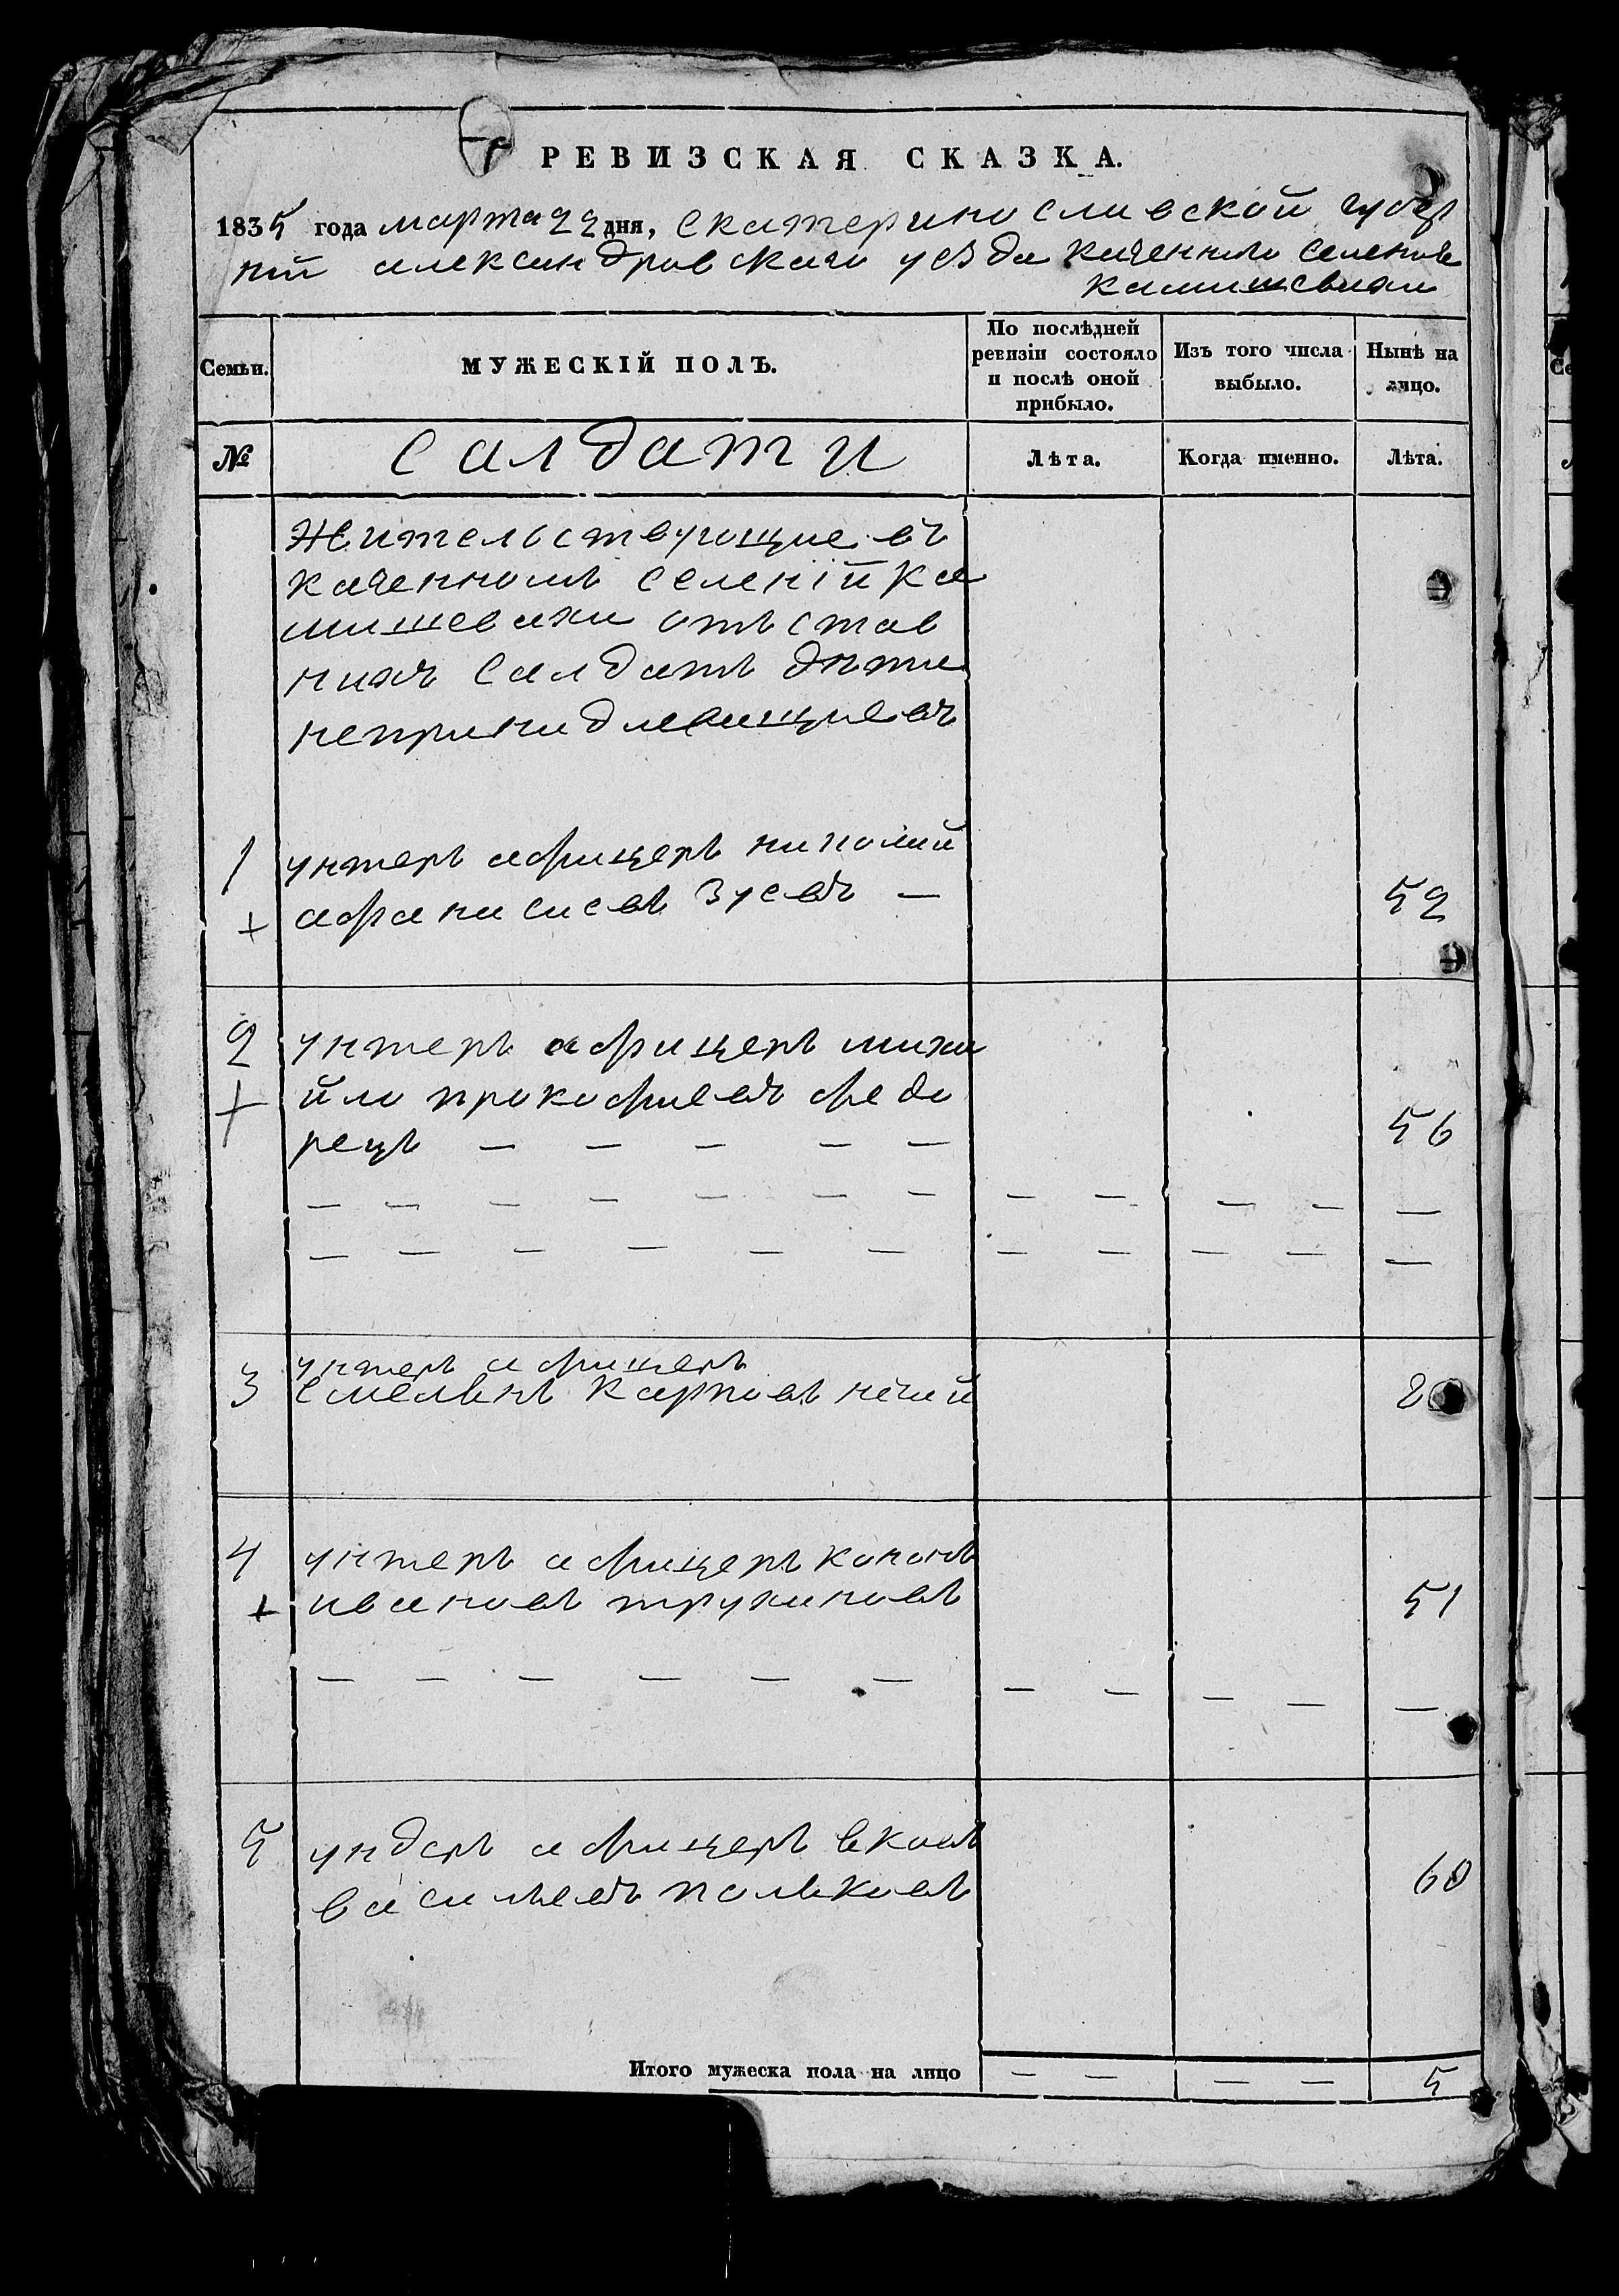 РЕВИЗСКАЯ СКАЗКА.
1835 года марта 22 дня, екатеринославской губер
ний александровскаго уезда казенного селения
камишевахи
Семьи.
МУЖЕСКІЙ ПОЛЪ.
По послѣдней ревизіи состояло и послѣ оной прибыло.
Изъ того числа выбыло.
Нынѣ на лицо.
№
салдати
Лѣта.
Когда именно.
Лѣта.
жительствующие въ
казенномъ селеній ка
мишевахи отъстав
нихъ салдатъ дѣти
1 унтеръ афицеръ
+ афанасиевъ зусевъ — 52
2 унтеръ афицеръ миха
+ йло прокофиевъ федо
рецъ — — — — — 56
— — — — — — — — — — — —
— — — — — — — — — — —
унтеръ афицеръ
3 емельянъ карповъ
4 унтеръ афицеръ кононъ
+ ивановъ трухановъ 51
— — — — — — — — — — —
5 ундеръ афицеръ
васильевъ польковъ 60
Итого мужеска пола на лицо — — — — 5